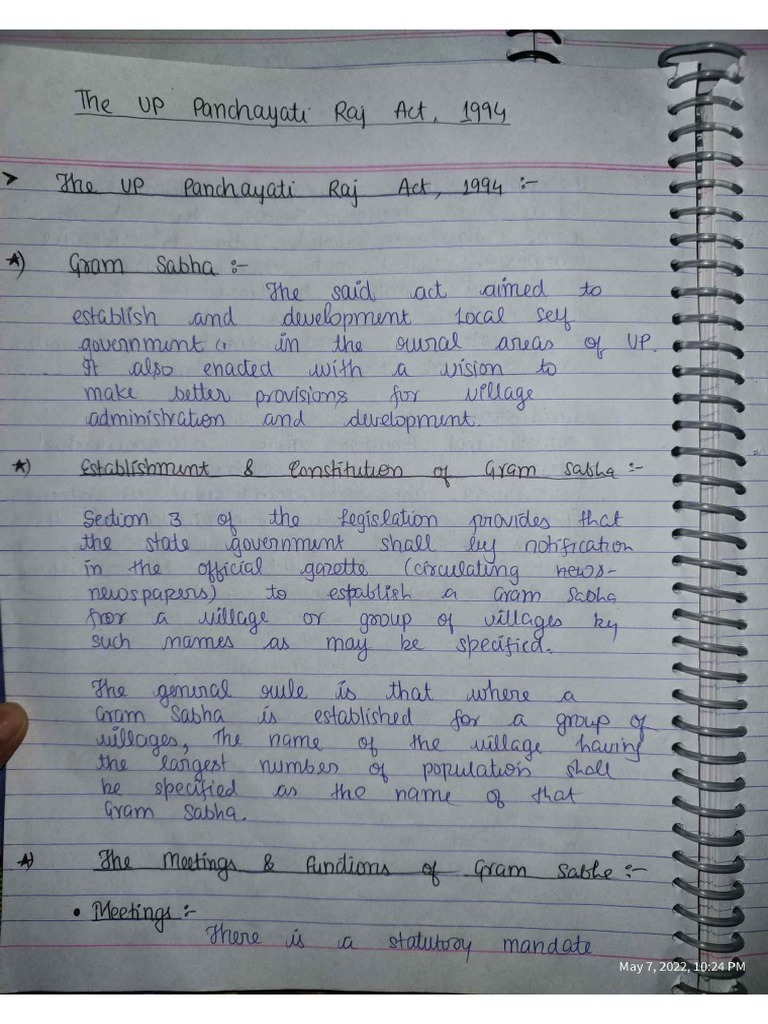 The UP Panchayati Raj Act, 1994
> The UP Panchayati Raj Act, 1994 :-
*) Gram Sabha :-
The said act aimed to
establish and development Local self
government in the rural areas of UP.
It also enacted with a vision to
make better provisions for village
administration and development.
*) Establishment & Constitution of Gram Sabha :-
Section 3 of the Legislation provides that
the state government shall by notification
in the official gazette (circulating news-
newspapers) to establish a Gram Sabha
fror a village or group of villages by
such names as may be specified.
The general rule is that where a
Gram Sabha is established for a group of
villages, The name of the village having
the largest number of population shall
be specified as the name of that
Gram Sabha.
*) The Meetings & Functions of Gram Sabhe :-
• Meetings :-
There is a statutory mandate
May 7, 2022, 10:24 PM